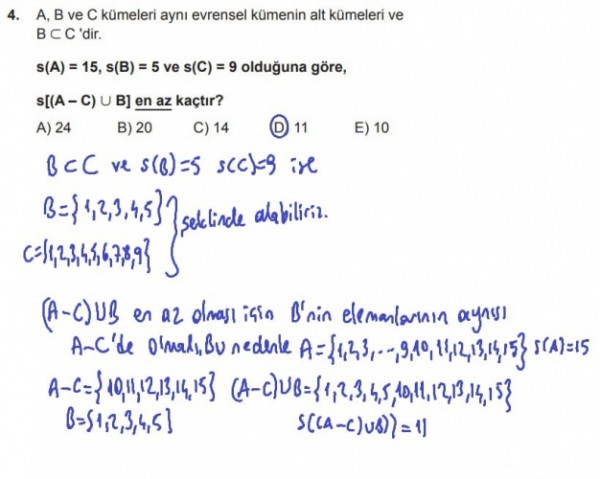 4. A, B ve C kümeleri aynı evrensel kümenin alt kümeleri ve
B ⊂ C 'dir.
s(A) = 15, s(B) = 5 ve s(C) = 9 olduğuna göre,
s[(A – C) ∪ B] en az kaçtır?
A) 24 B) 20 C) 14 D) 11 E) 10
B⊂C ve s(B)=5 s(C)=9 ise
B={1,2,3,4,5}
şeklinde alabiliriz.
C={1,2,3,4,5,6,7,8,9}
(A-C)∪B en az olması için B'nin elemanlarının aynısı
A-C'de olmalı, Bu nedenle A={1,2,3,...,9,10,11,12,13,14,15} s(A)=15
A-C={10,11,12,13,14,15} (A-C)∪B={1,2,3,4,5,10,11,12,13,14,15}
B={1,2,3,4,5} s((A-C)∪B))=11